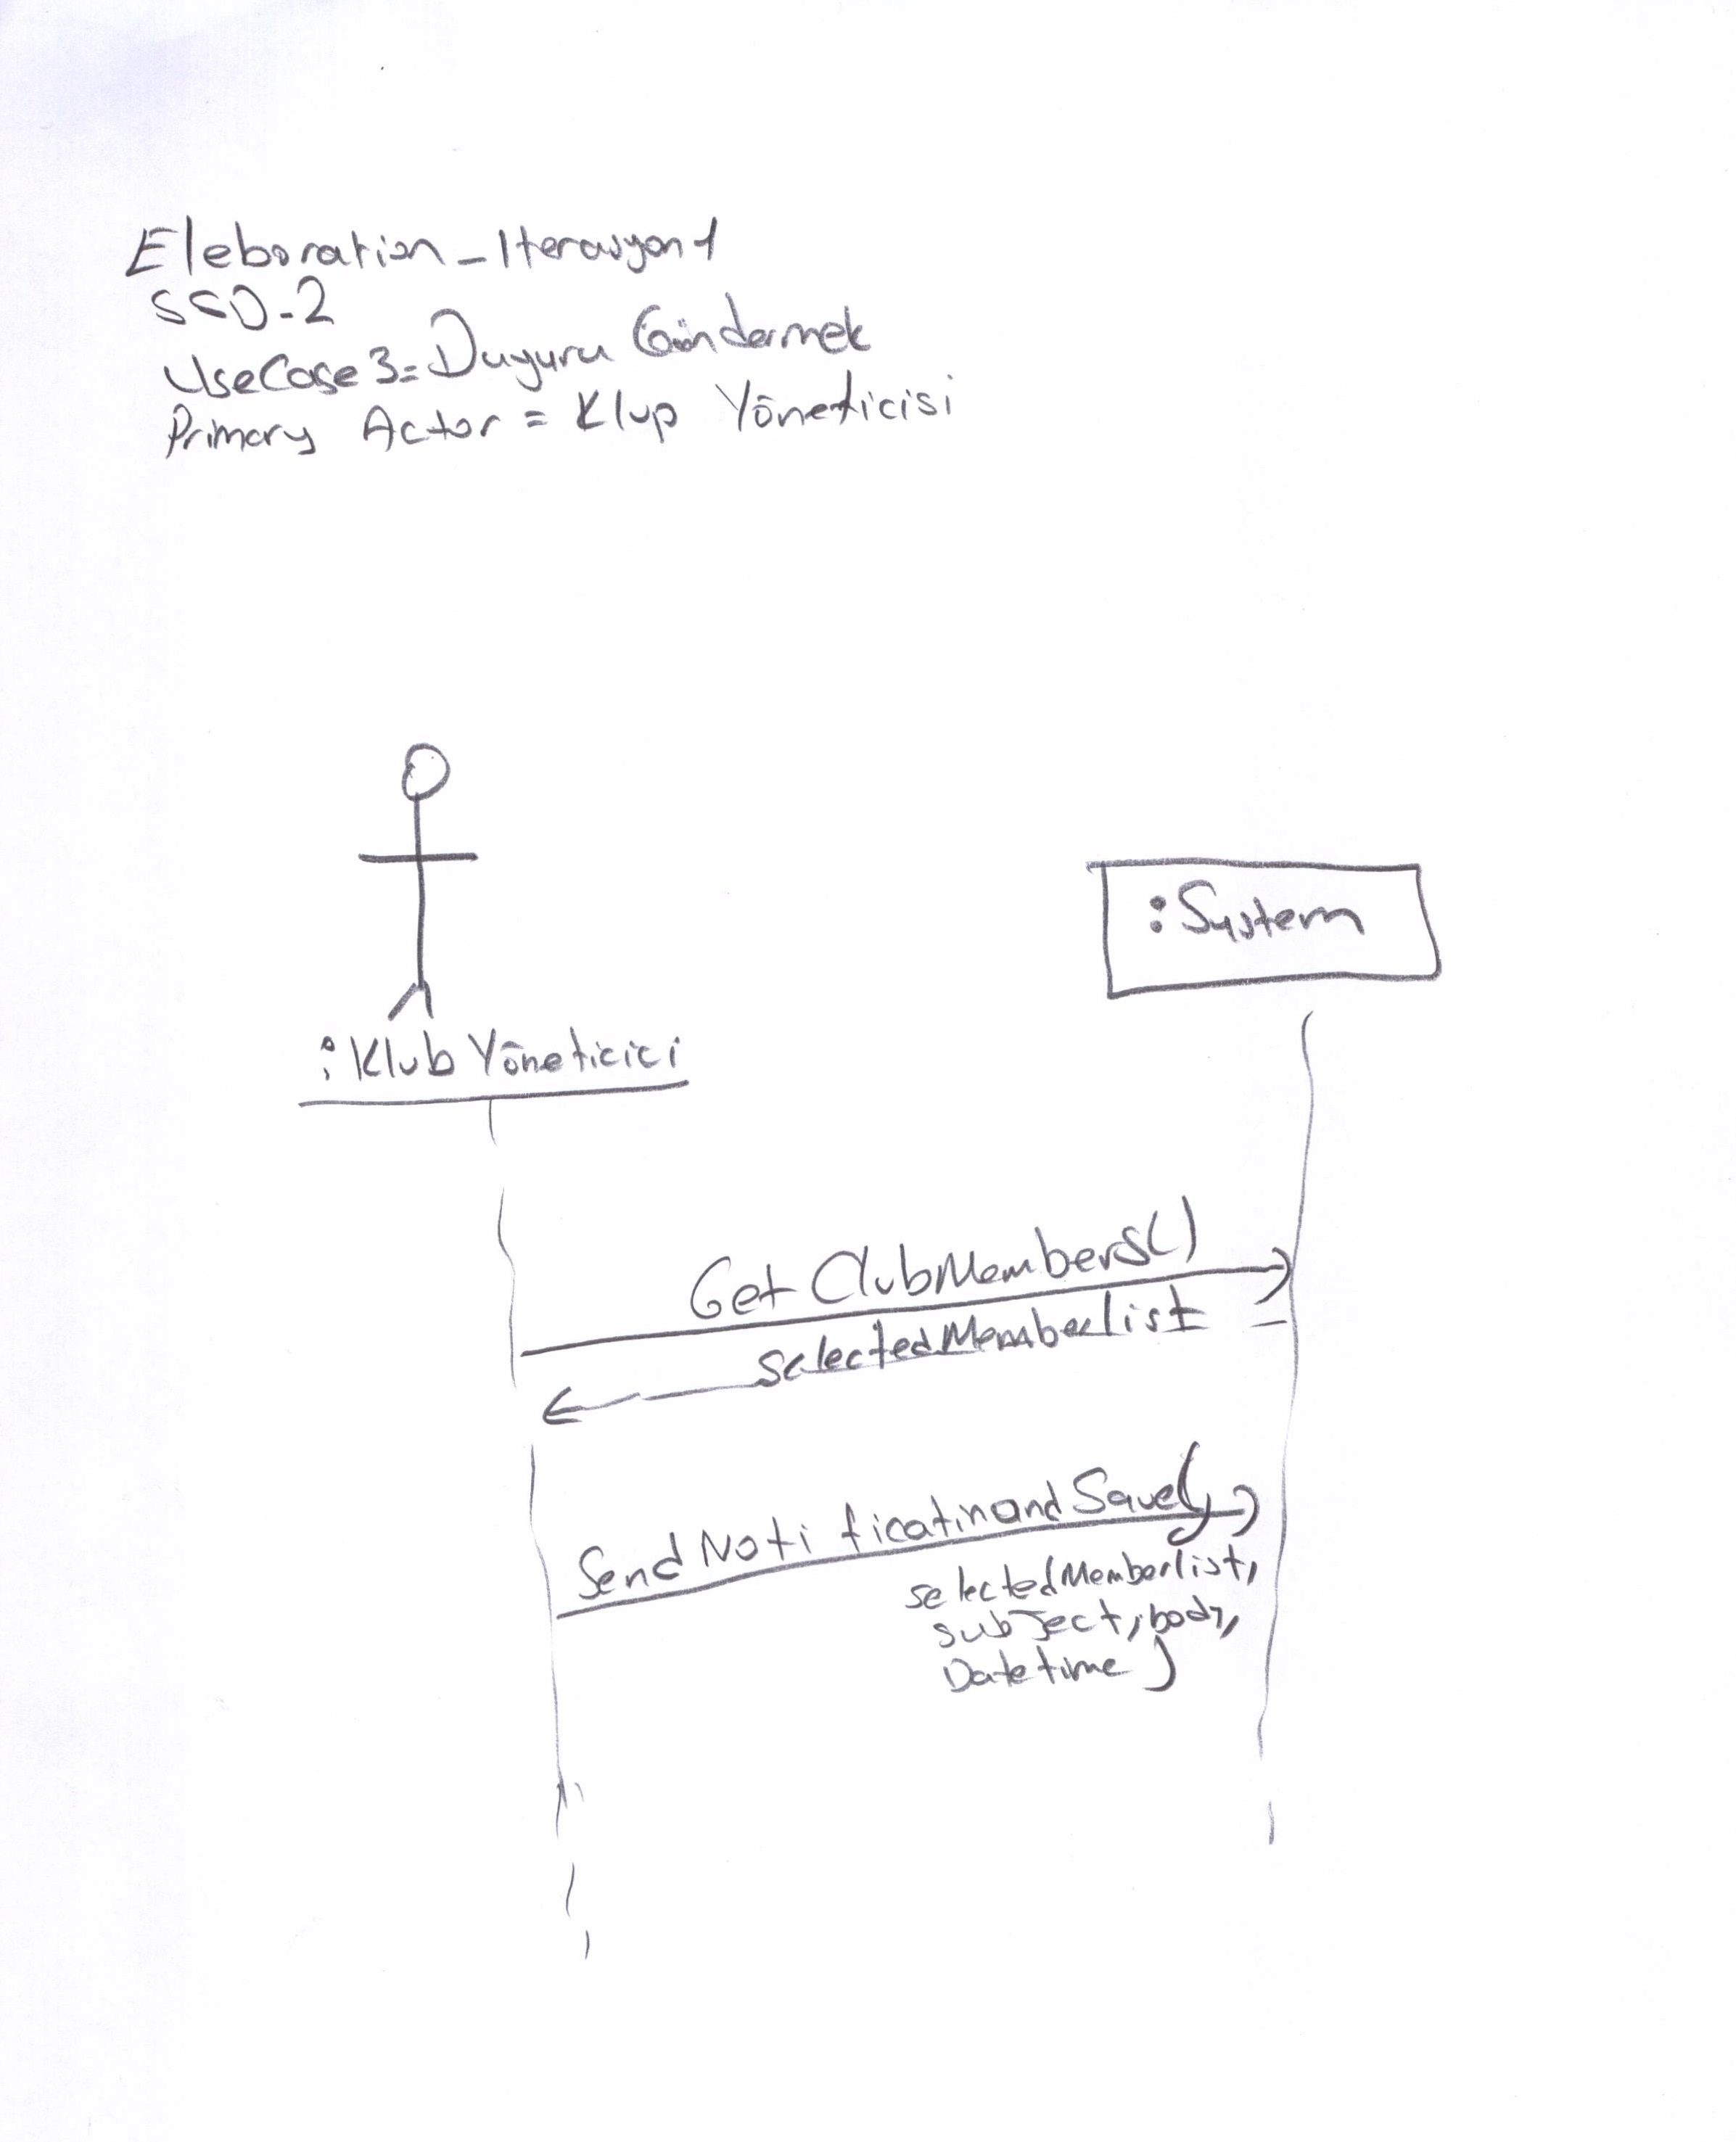 Eleboration_Iterasyon1
SSD-2
UseCase3=Duyuru Göndermek
Primary Actor = Klup Yöneticisi
:System
:Klub Yöneticici
Get ClubMembers()
selectedMemberlist
SendNotificatinandSave(
selectedMemberlist,
subject,body,
Datetime)